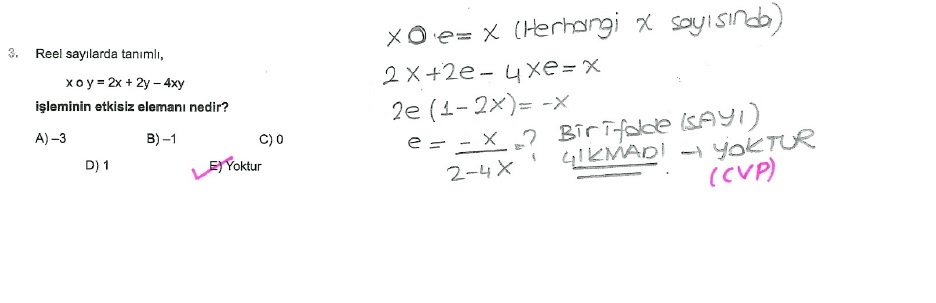 3. Reel sayılarda tanımlı,
x o y = 2x + 2y – 4xy
işleminin etkisiz elemanı nedir?
A) –3 B) –1 C) 0
D) 1 E) Yoktur
x O e = x (Herhangi x sayısında)
2x+2e-4xe=x
2e(1-2x)=-x
e = -x / 2-4x =? Bir ifade (SAYI)
ÇIKMADI → YOKTUR
(CVP)